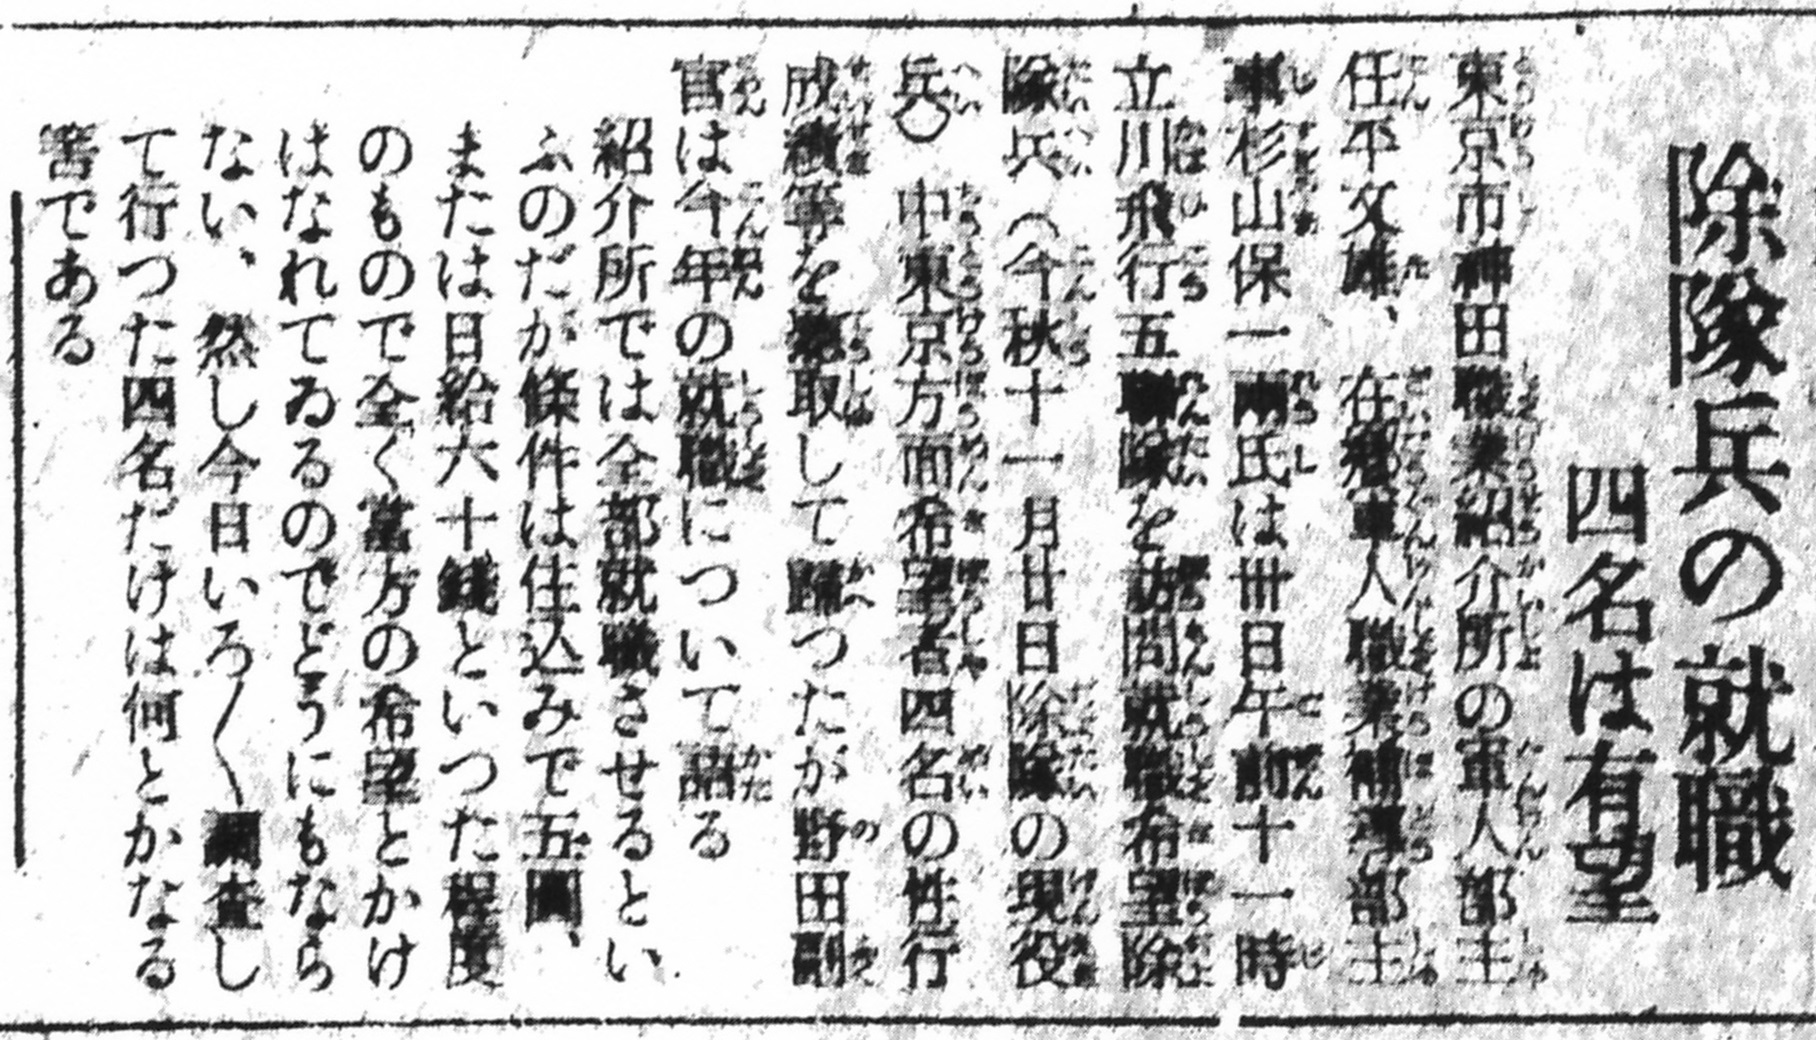 除隊兵の就職
四名は有望
東京市神田職業紹介所の軍人部主
任平文雄、在郷軍人職業補導部主
事杉山保一兩氏は卅日午前十一時
立川飛行五聯隊を訪問就職希望除
隊兵(今秋十一月廿日除隊の現役
兵)中東京方面希望者四名の性行
成績等を聽取して歸つたが野田副
官は今年の就職について語る
紹介所では全部就職させるとい
ふのだが條件は住込みで五圓、
または日給六十錢といつた程度
のもので全く當方の希望とかけ
はなれてゐるのでどうにもなら
ない、然し今日いろ〳〵調査し
て行つた四名だけは何とかなる
筈である